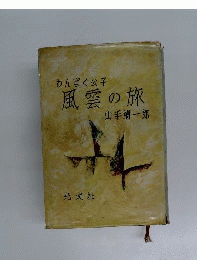 わんぱく公子
風雲の旅
山手樹一郎
桃文社